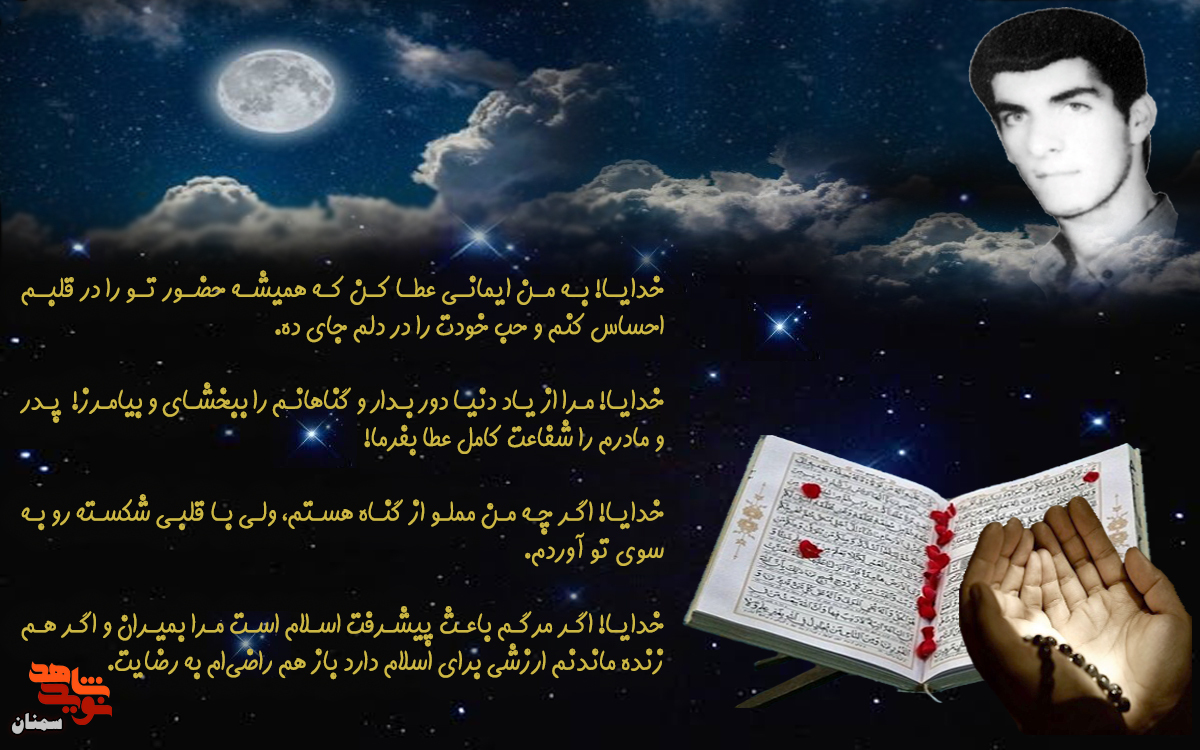 خدایا! به من ایمانی عطا کن که همیشه حضور تو را در قلبم
احساس کنم و حب خودت را در دلم جای ده.
خدایا! مرا از یاد دنیا دور بدار و گناهانم را ببخشای و بیامرز! پدر
و مادرم را شفاعت کامل عطا بفرما!
خدایا! اگر چه من مملو از گناه هستم، ولی با قلبی شکسته رو به
سوی تو آوردم.
خدایا! اگر مرگم باعث پیشرفت اسلام است مرا بمیران و اگر هم
زنده ماندنم ارزشی برای اسلام دارد باز هم راضی‌ام به رضایت.
نوید شاهد
سمنان